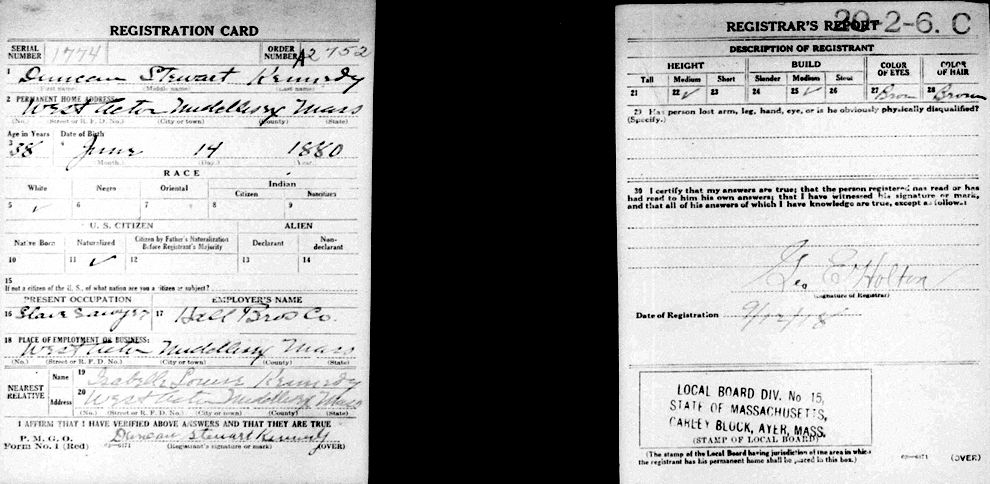 REGISTRATION CARD
SERIAL NUMBER 1774 ORDER NUMBER A2752
1 Duncan Stewart Kennedy
(First name) (Middle name) (Last name)
2 PERMANENT HOME ADDRESS:
West Acton Middlesex Mass
(No.) (Street or R. F. D. No.) (City or town) (County) (State)
Age in Years Date of Birth
3 38 4 June 14 1880
(Month.) (Day.) (Year.)
RACE
White Negro Oriental Indian
Citizen Noncitizen
5 ✓ 6 7 8 9
U. S. CITIZEN ALIEN
Native Born Naturalized Citizen by Father's Naturalization Before Registrant's Majority Declarant Non-declarant
10 11 ✓ 12 13 14
15
If not a citizen of the U. S., of what nation are you a citizen or subject?
PRESENT OCCUPATION EMPLOYER'S NAME
16 Stave Sawyer 17 Hall Bros Co.
18 PLACE OF EMPLOYMENT OR BUSINESS:
West Acton Middlesex Mass
(No.) (Street or R. F. D. No.) (City or town) (County) (State)
NEAREST RELATIVE
Name 19 Isabelle Louise Kennedy
Address 20 West Acton Middlesex Mass
(No.) (Street or R. F. D. No.) (City or town) (County) (State)
I AFFIRM THAT I HAVE VERIFIED ABOVE ANSWERS AND THAT THEY ARE TRUE
P. M. G. O.
Form No. 1 (Red) Duncan Stewart Kennedy
(Registrant's signature or mark) (OVER)
REGISTRAR'S REPORT 20-2-6. C
DESCRIPTION OF REGISTRANT
HEIGHT BUILD COLOR OF EYES COLOR OF HAIR
Tall Medium Short Slender Medium Stout
21 22 ✓ 23 24 25 ✓ 26 27 Brown 28 Brown
29 Has person lost arm, leg, hand, eye, or is he obviously physically disqualified?
(Specify.)
30 I certify that my answers are true; that the person registered has read or has
had read to him his own answers; that I have witnessed his signature or mark,
and that all of his answers of which I have knowledge are true, except as follows:
Geo E Holton
(Signature of Registrar)
Date of Registration 9/12/18
LOCAL BOARD DIV. No 15,
STATE OF MASSACHUSETTS,
CARLEY BLOCK, AYER, MASS.
(STAMP OF LOCAL BOARD)
(The stamp of the Local Board having jurisdiction of the area in which
the registrant has his permanent home shall be placed in this box.) (OVER)